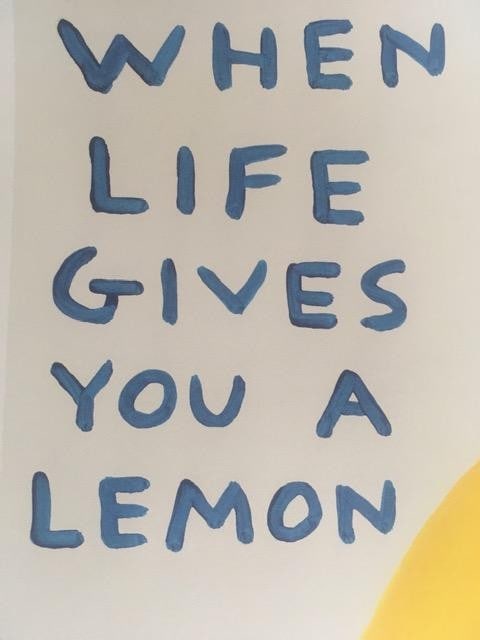 WHEN
LIFE
GIVES
YOU A
LEMON